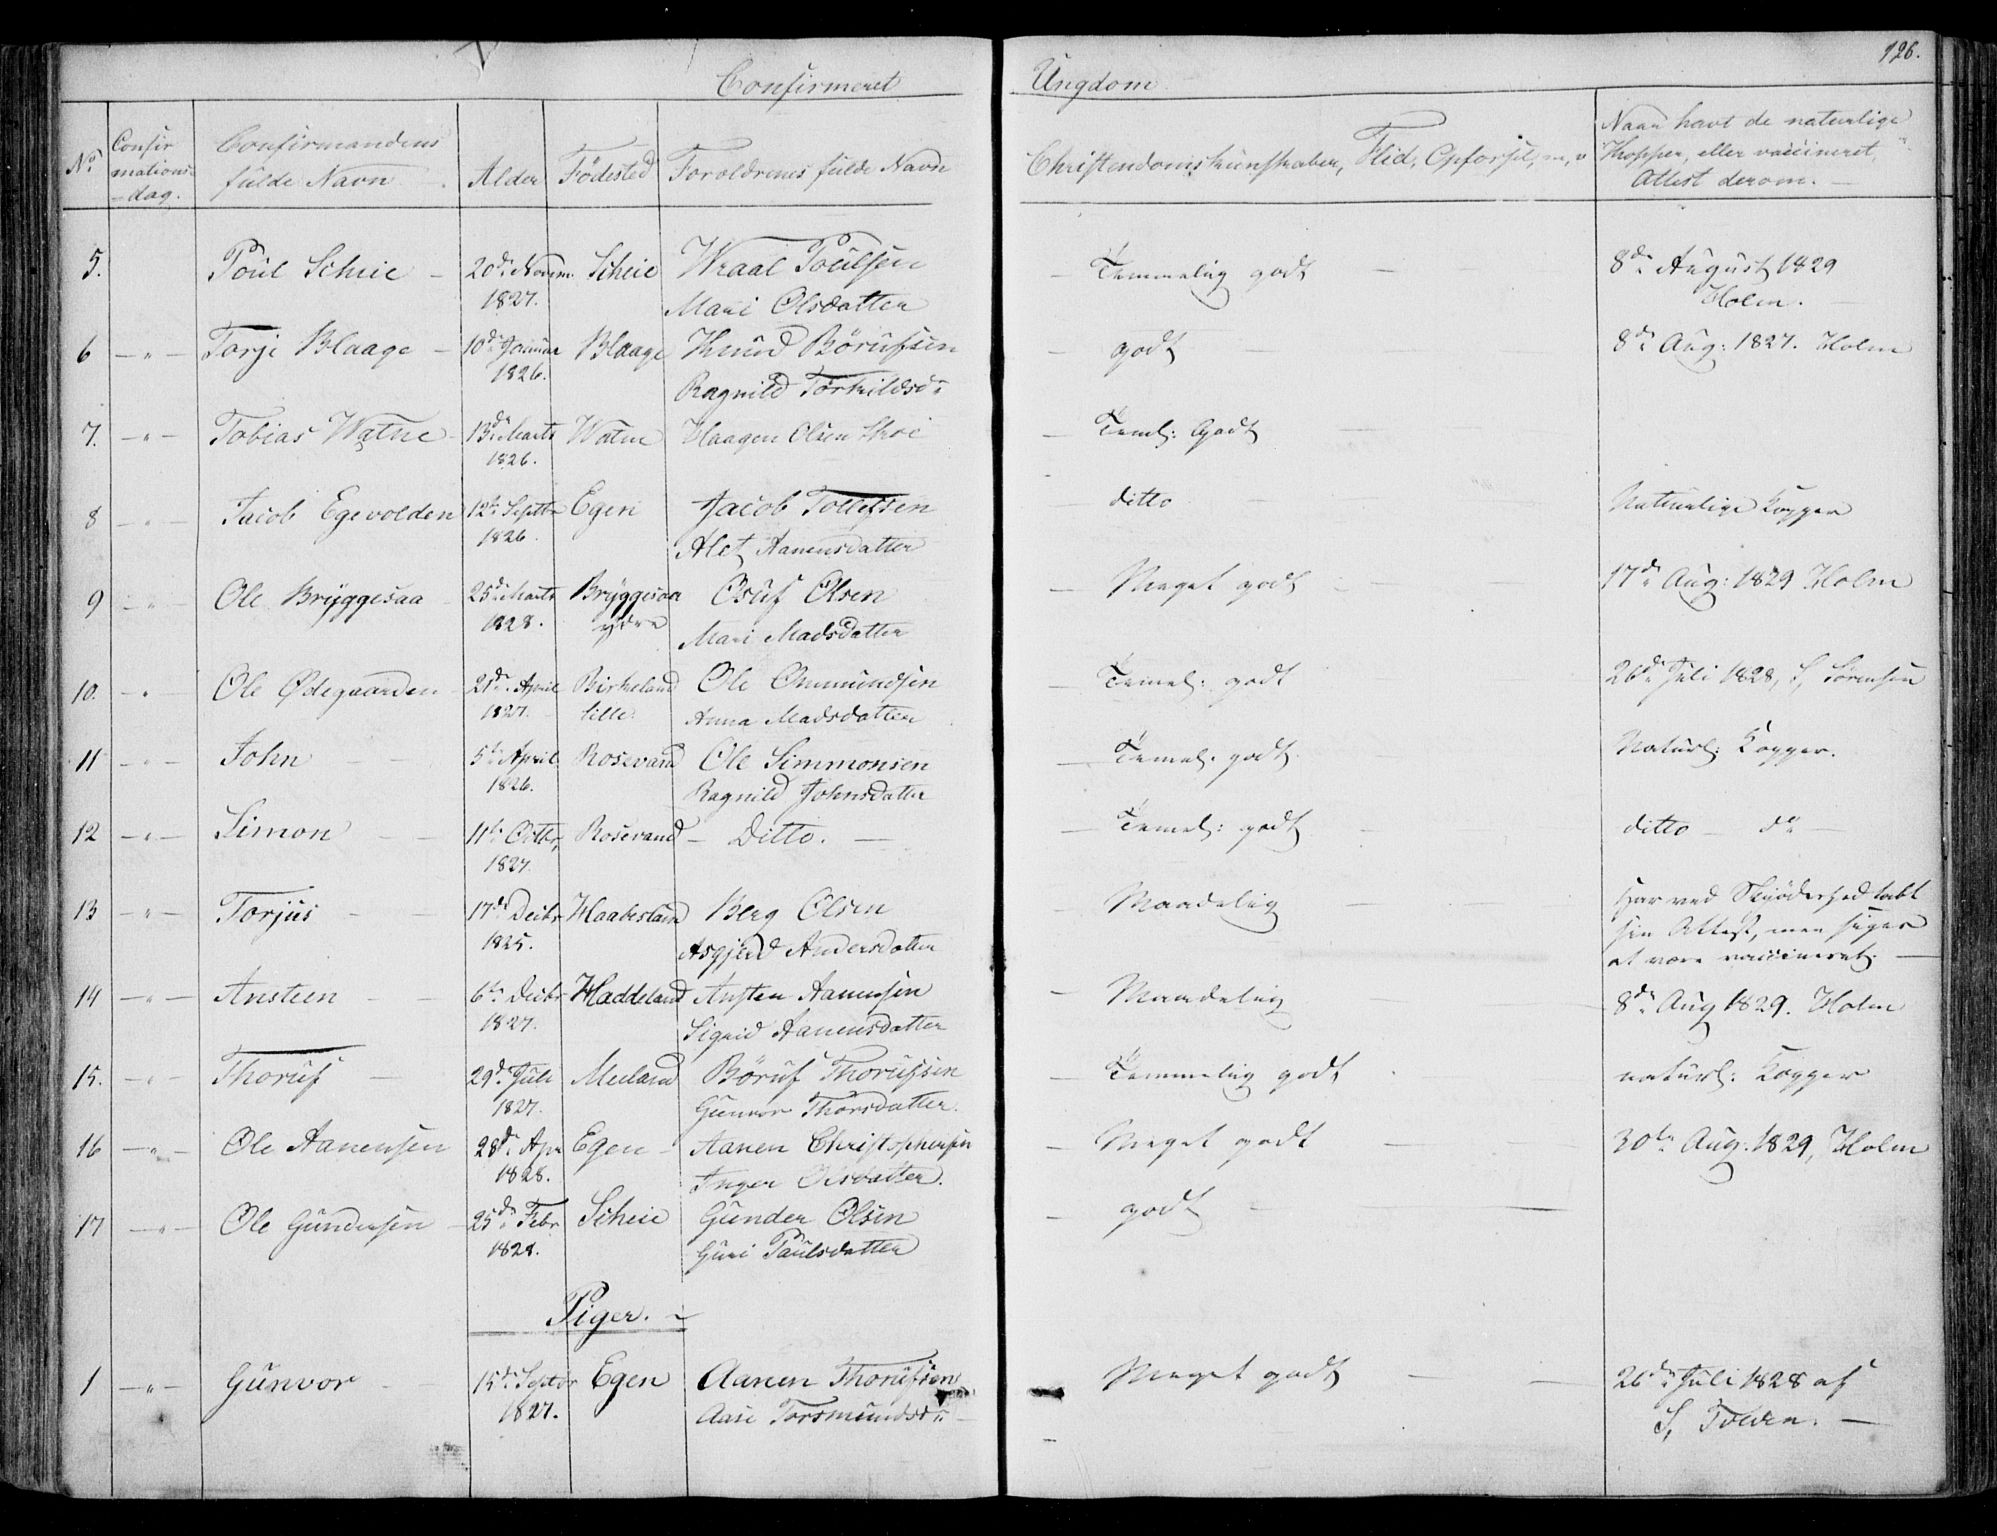 Confirmeret Ungdom.
126.
No.
Confir
mations-
dag.
Confirmandens
fulde Navn
Alder
Födested
Foroldrenes fulde Navn
Christendomskunskaber, Flid, Opforsel, m, v
Naar havt de naturlige
Kopper, eller vaccineret,
Attest derom. —
5. Poul Scheie — 20de Novem. Scheie Wraal Poulsen — Temmelig godt — 8de August 1829
1827. Mari Olsdatter Holm. —
6 —"— Torje Blaage — 10de Januar Blaage Knud Börufsen — godt — 8de Aug: 1827. Holm
1826. Ragnild Torkildsd:
7. —"— Tobias Watne — 13de Marts Watne Haagen Olsen — Teml: Godt —
1826.
8 —"— Jacob Egevolden 12te Septbr Egen Jacob Tollefsen — ditto — Naturlige Kopper
1826. Alet Aanensdatter
9 —"— Ole Bryggesaa 25de Marts Bryggesaa Osuf Olsen — Meget godt — 17de Aug: 1829 Holm
1828. ydre Mari Madsdatter
10. —"— Ole Ødegaarden — 21de April Birkeland Ole Ommundsen — Temel: godt 26de Juli 1828, S, Sørensen
1827. lille. Anna Madsdatter
11 —"— John — 5te April Rosevand Ole Simmonsen — Temel. godt. Naturl: Kopper.
1826. Ragnild Johnsdatter
12 —"— Simon — 11te Octbr, Rosevand — Ditto. — Temel: godt — ditto — do —
1827.
13 —"— Torjus — 17de Decbr Haabesland Berg Olsen — Maadelig — Har ved Skjödeshed tabt
1825. Asgjerd Andersdatter sin Attest, men siges
at være vaccineret. —
14 —"— Ansteen — 6te Decbr Haddeland Ansten Aanensen — Maadelig — 8de Aug 1829. Holm
1827. Sigrid Aanensdatter
15. —"— Thoruf — 29de Juli Meeland Böruf Thorufsen — Temmelig godt naturl: Kopper
1827. Gunvor Thorsdatter.
16 —"— Ole Aanensen 28de Apr Egen — Aanen Christophersen — Meget godt — 30te Aug. 1829, Holm
1828. Inger Olsdatter.
17 —"— Ole Gundersen — 25de Febr Scheie Gunder Olsen — godt —
1828. Guri Paulsdatter
Piger. —
1 —"— Gunvor — 15de Septbr Egen Aanen Thorufsen — Meget godt — 26de Juli 1828 af
1827. Aase Tormundsd: — S, Tveden. —